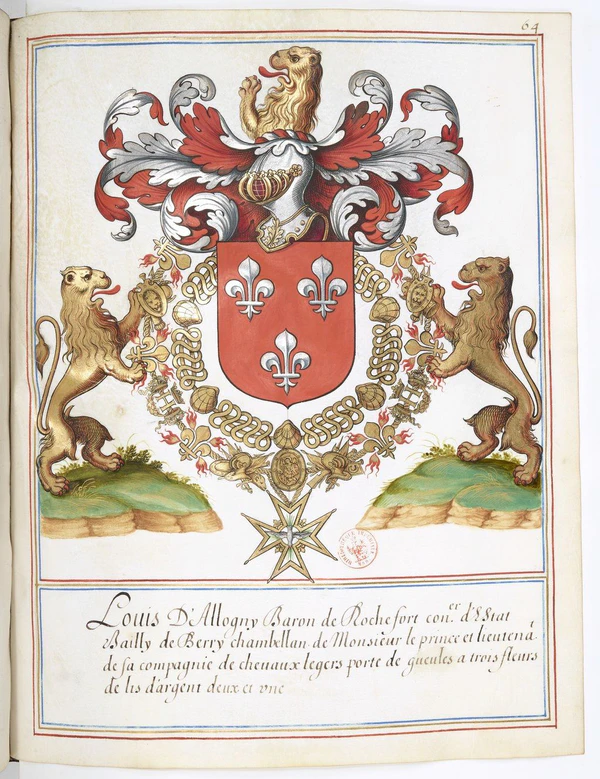 64
Louis D'Allogny Baron de Rochefort con.er d'Estat
Bailly de Berry chambellan de Monsieur le prince et lieutenāt
de sa compagnie de cheuaux legers porte de gueules a trois fleurs
de lis d'argent deux et vne